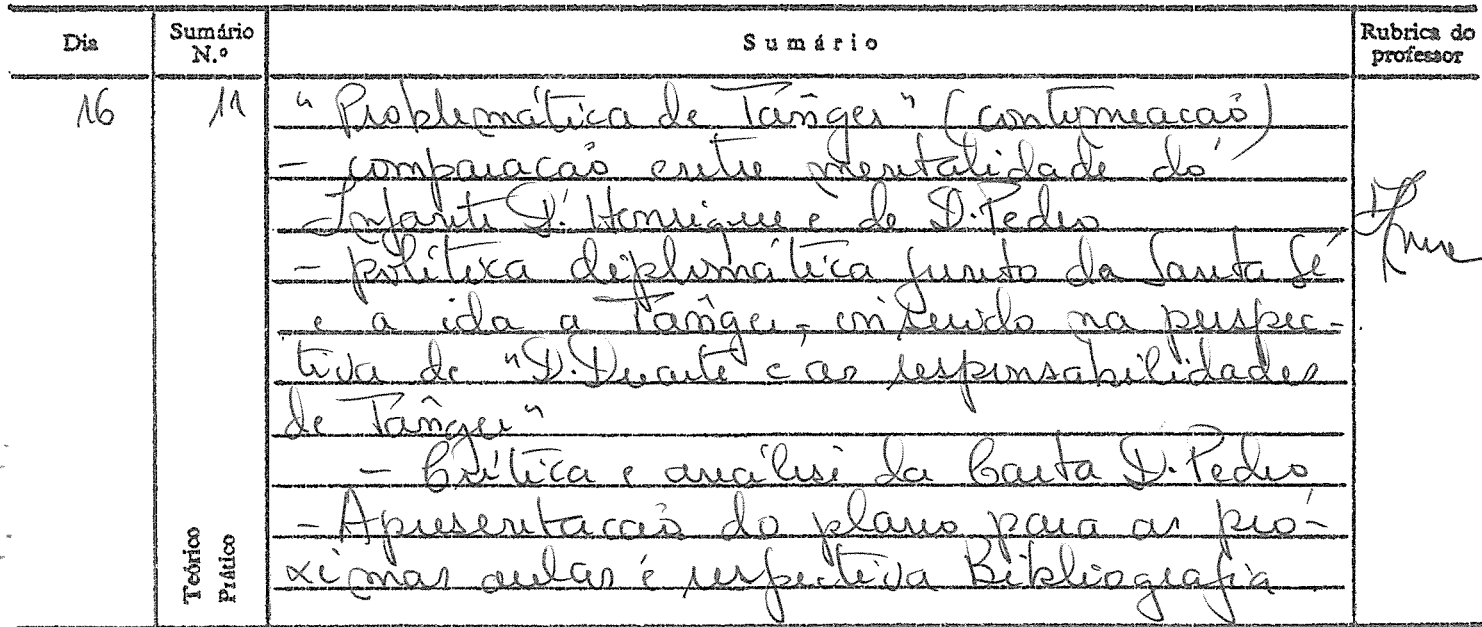 Dia
Sumário N.º
Sumário
Rubrica do professor
16
11
"Problemática de Tânger" (continuação)
- comparação entre mentalidade do
Infante D. Henrique e de D. Pedro
- política diplomática junto da Santa Sé
e a ida a Tânger, inserido na perspec-
tiva de "D. Duarte e as responsabilidades
de Tânger"
- Crítica e análise da Carta D. Pedro
- Apresentação do plano para as pró-
ximas aulas e respectiva Bibliografia
Teórico
Prático